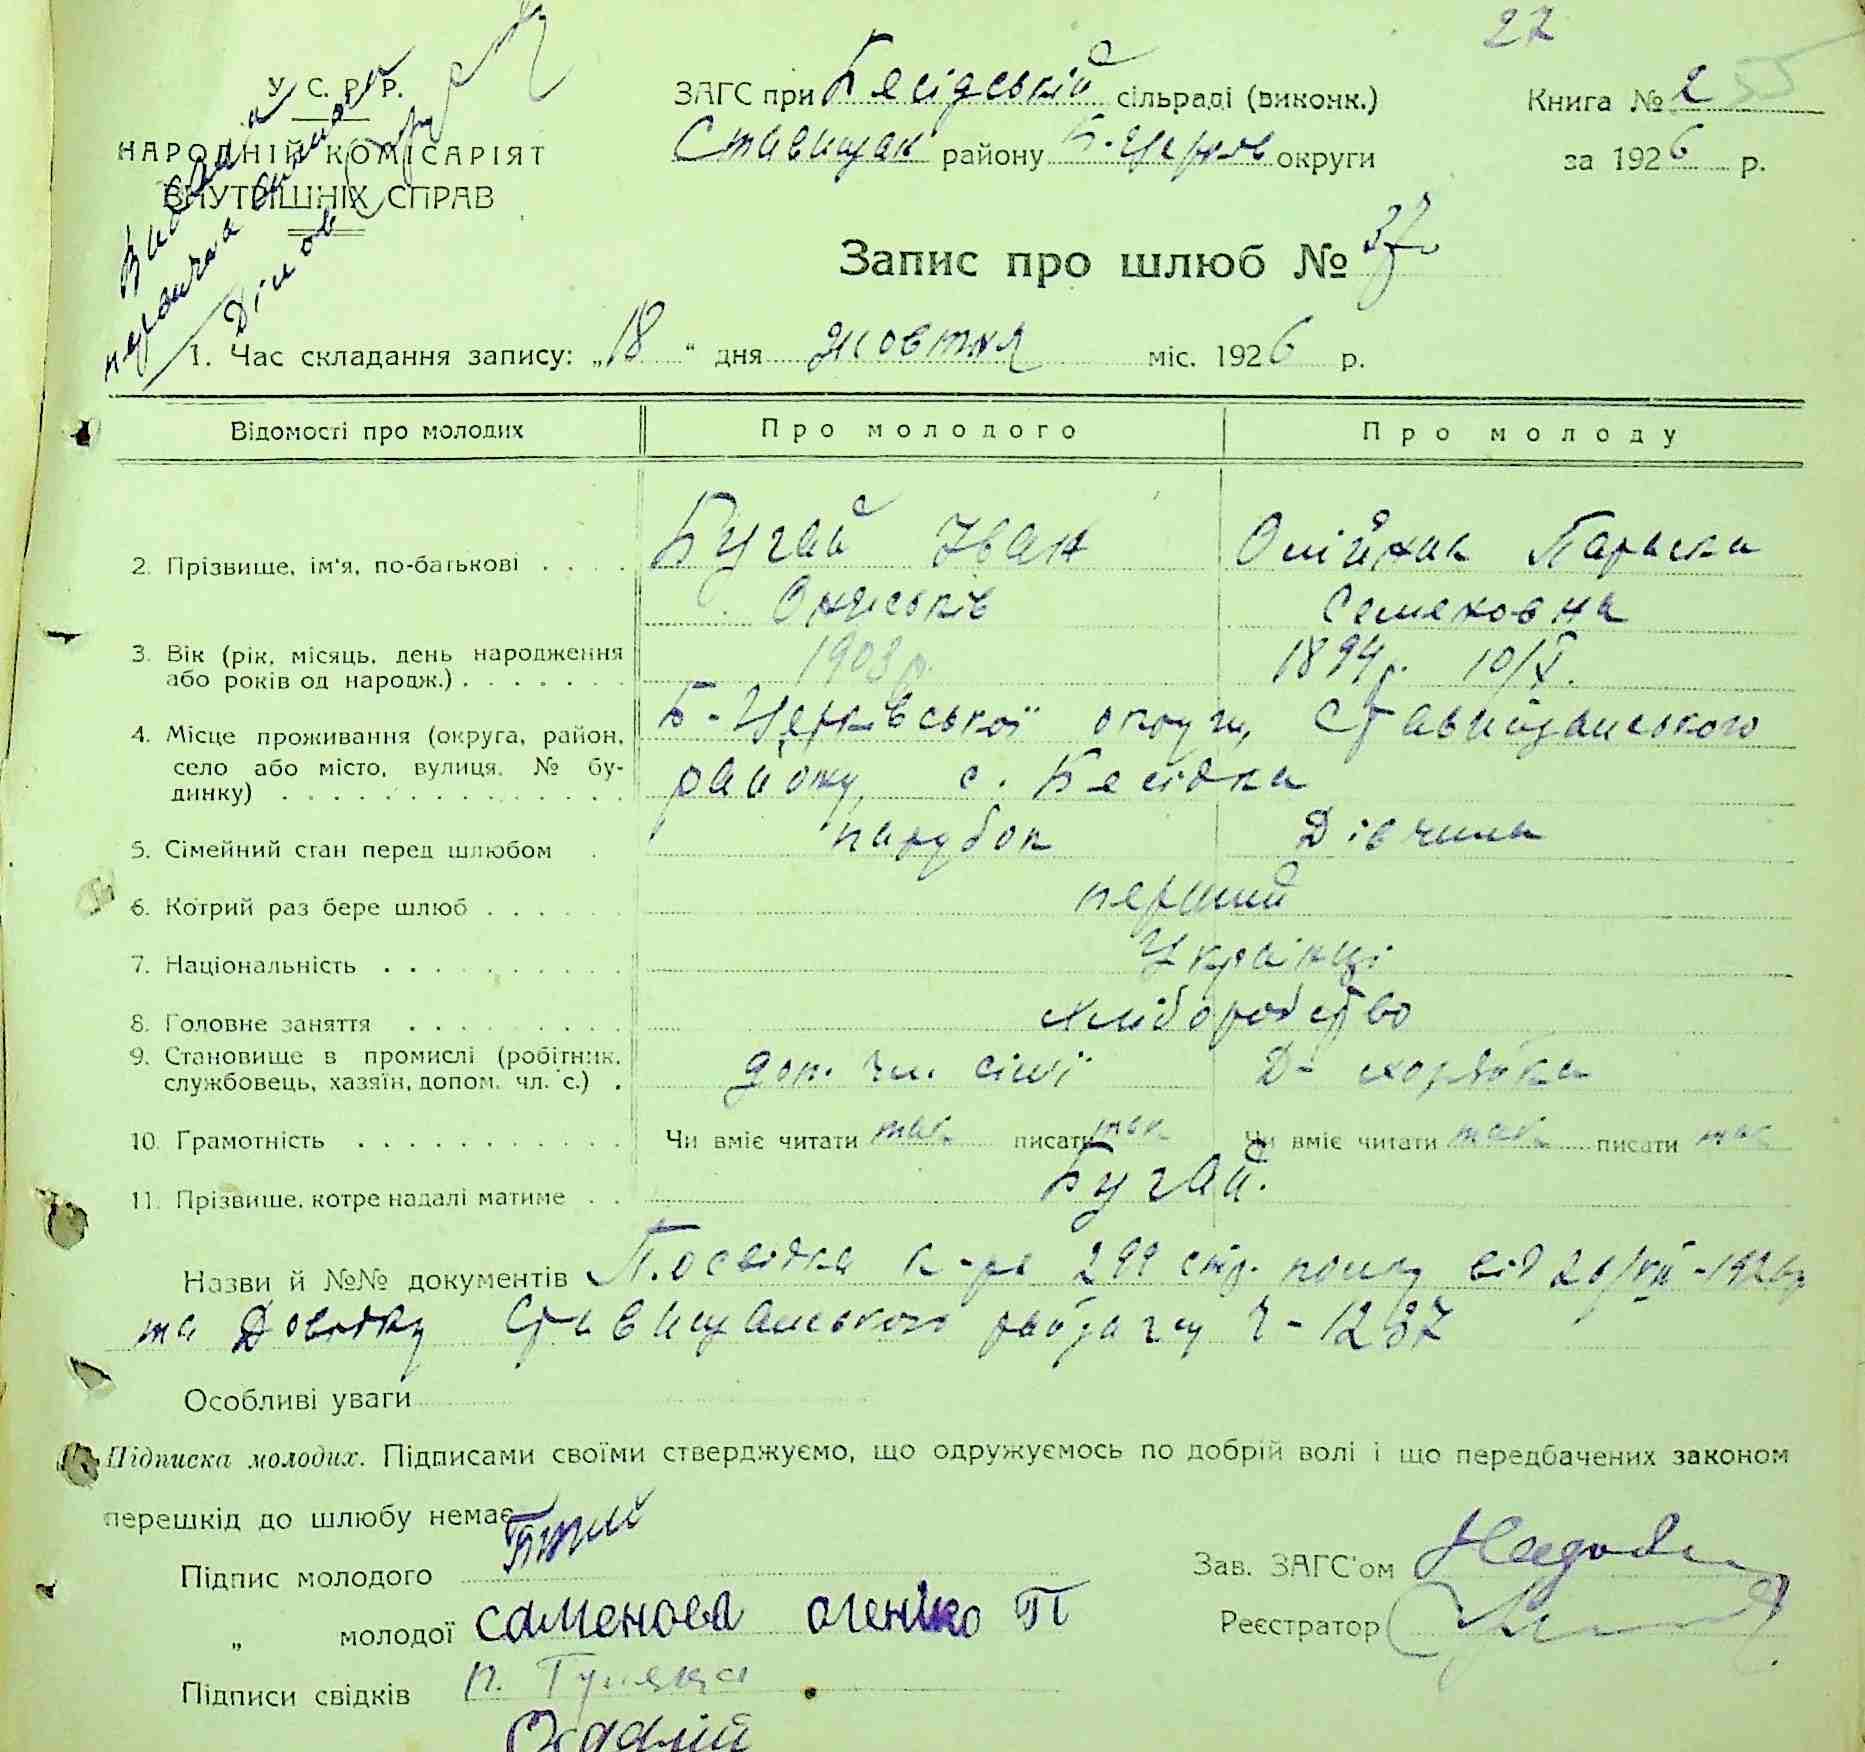 27
У. С. Р. Р.
НАРОДНІЙ КОМІСАРІЯТ
ВНУТРІШНІХ СПРАВ
Видана
ЗАГС при Бесідській сільраді (виконк.)
Ставищан району Б-Церков округи
Книга № 2 55
за 1926 р.
Запис про шлюб № 37
1. Час складання запису: „18“ дня жовтня міс. 1926 р.
Відомості про молодих Про молодого Про молоду
2. Прізвище, ім'я, по-батькові Бугай Іван Олійник Параска
Семеновна
3. Вік (рік, місяць, день народження 1903 р. 1894 р. 10/X.
або років од народж.)
4. Місце проживання (округа, район, Б-Церківської округи, Ставищанського
село або місто, вулиця, № бу- району, с. Бесідка
динку)
5. Сімейний стан перед шлюбом парубок Дівчина
6. Котрий раз бере шлюб перший
7. Національність Українці
8. Головне заняття хліборобство
9. Становище в промислі (робітник, доп. чл. сімї
службовець, хазяїн, допом. чл. с.)
10. Грамотність Чи вміє читати так писати так Чи вміє читати так писати так
11. Прізвище, котре надалі матиме Бугай.
Назви й №№ документів Посвідка к-ра 299 стр. полку від 1926 р
та Довідку Ставищанського Ч-1237
Особливі уваги
Підписка молодих. Підписами своїми стверджуємо, що одружуємось по добрій волі і що передбачених законом
перешкід до шлюбу немає
Підпис молодого
„ молодої саменова П
Зав. ЗАГС'ом
Реєстратор
Підписи свідків П.